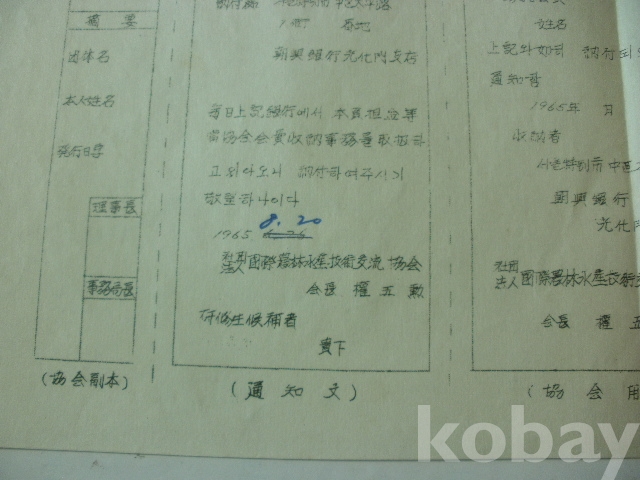 摘 要
団体名
本人姓名
発行日字
理事長
事務局長
(協会副本)
朝興銀行光化門支店
毎日上記銀行에서 本員担当等
当協会会費収納事務를 取扱하
고 있아오니
하여주시기
敬望하나이다
8. 20
1965.
社団法人 国際農林水産技術交流協会
会長 權五勲
研修生候補者
貴下
(通知文)
姓名
上記와如히
通知함
1965年 月
収納者
서울特別市中区
朝興銀行
光化門
社団法人 国際農林水産技術
会長 權五
(協会用
kobay